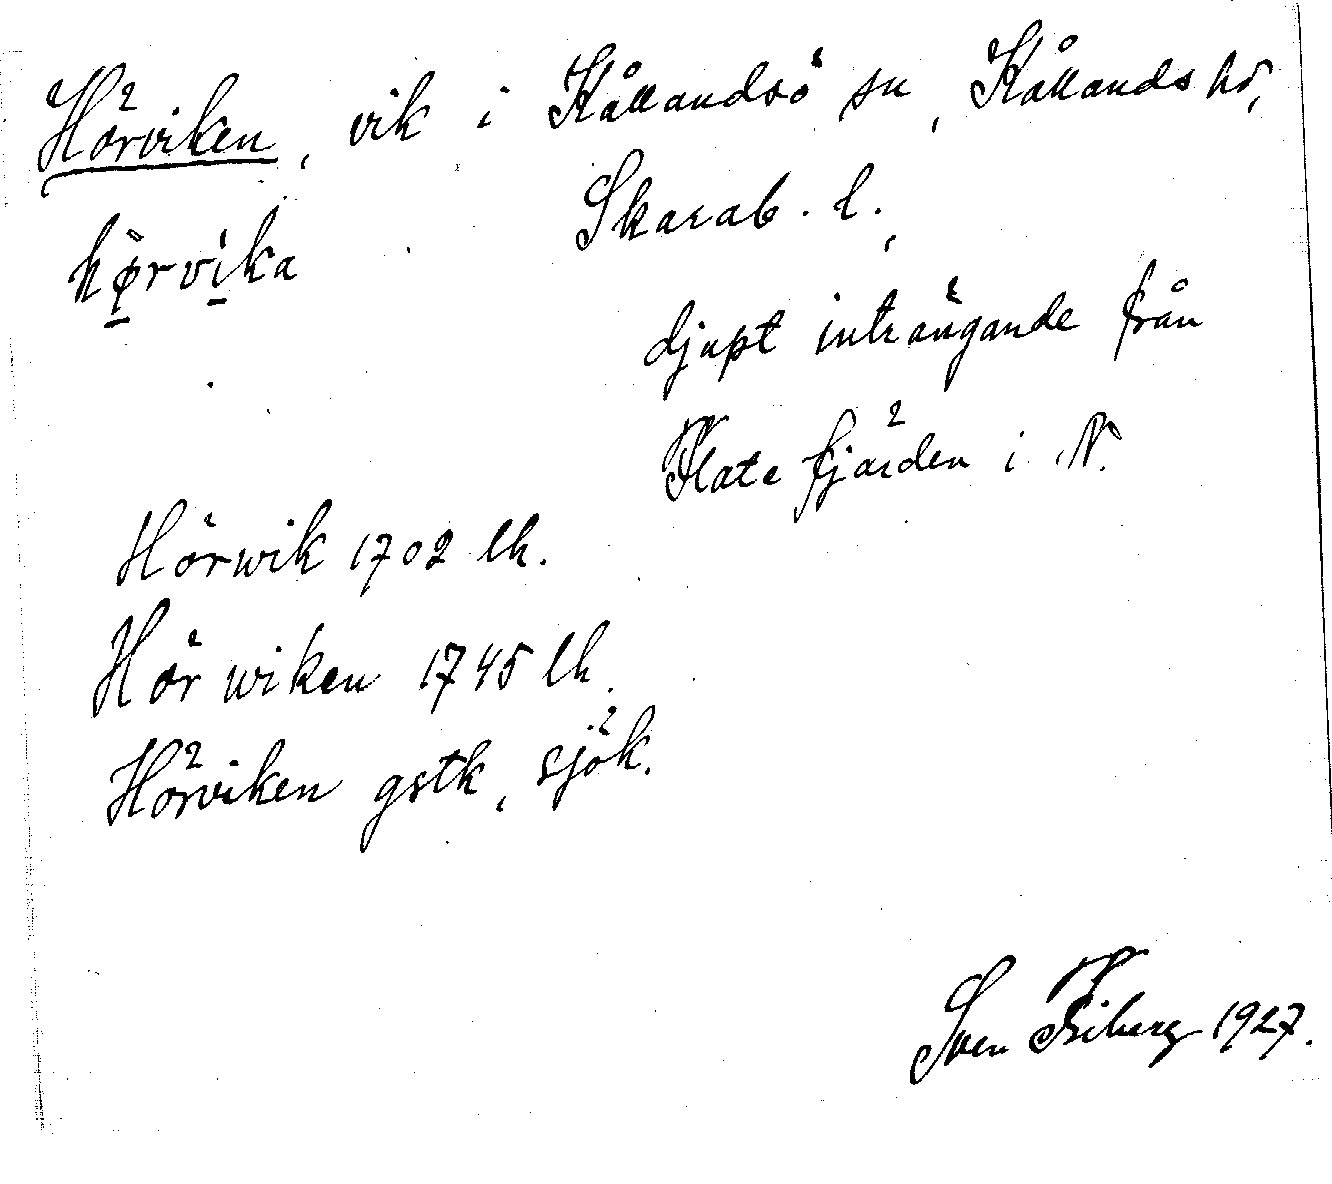 Hörviken, vik i Kållandsö sn, Kållands hd,
Skarab. l.,
hø̀rvi̍ka
djupt inträngande från
Flate fjärden i N.
Hörwik 1702 lh.
Hör wiken 1745 lh.
Hörviken gstk, sjök.
Sven Fiberg 1927.